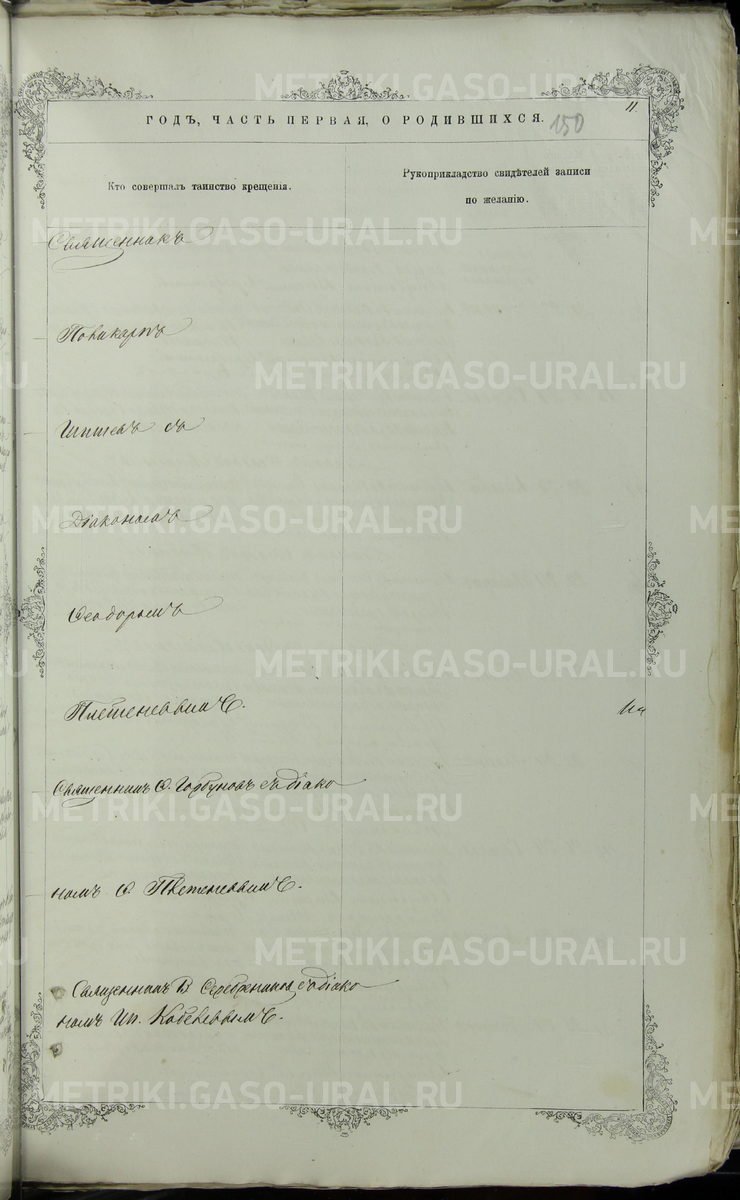 11
ГОДЪ, ЧАСТЬ ПЕРВАЯ, О РОДИВШИХСЯ.
150
Кто совершалъ таинство крещенія.
Рукоприкладство свидѣтелей записи
по желанію.
Священникъ
Поликарпъ
съ
Діакономъ
Ѳеодоромъ
Плетеневымъ.
Священникъ Ѳ. Горбуновъ съ діако
номъ Ѳ. Плетеневымъ.
Священникъ В. Серебренниковъ съ діако
номъ Ип. Кобелевымъ.
METRIKI.GASO-URAL.RU